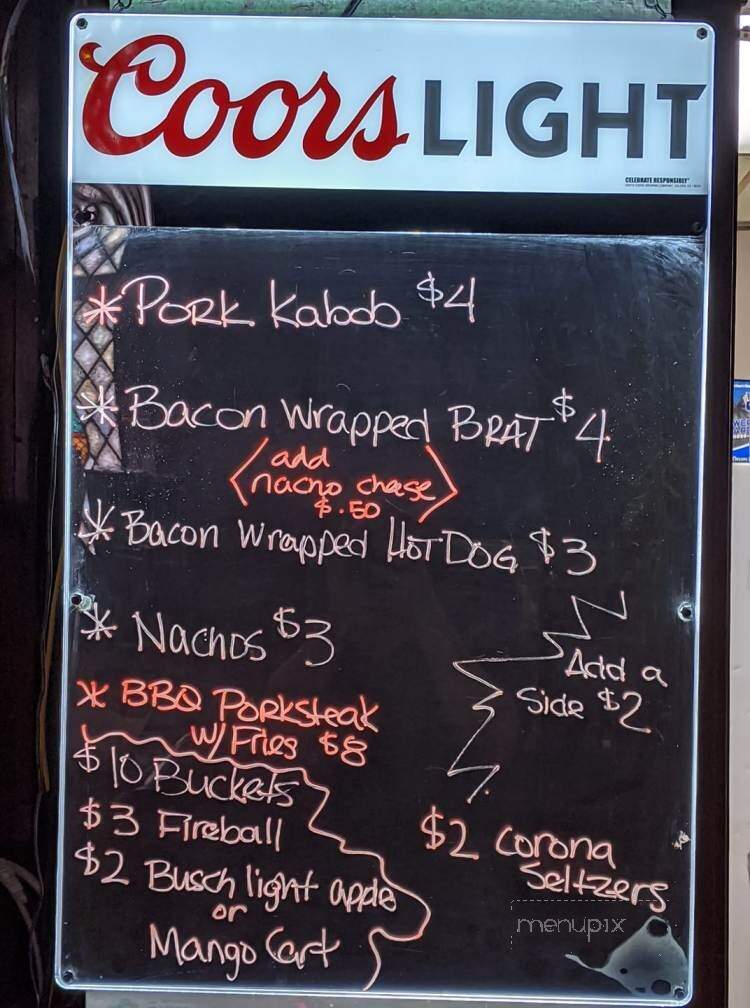 Coors LIGHT
CELEBRATE RESPONSIBLY®
* PORK Kabob $4
* Bacon Wrapped BRAT $4
add
nacho chese
$.50
* Bacon Wrapped HOT DOG $3
* Nachos $3
Add a
Side $2
* BBQ Porksteak
w/ Fries $8
$10 Buckets
$3 Fireball
$2 Busch light apple
or
Mango Cart
$2 Corona
Seltzers
menupix